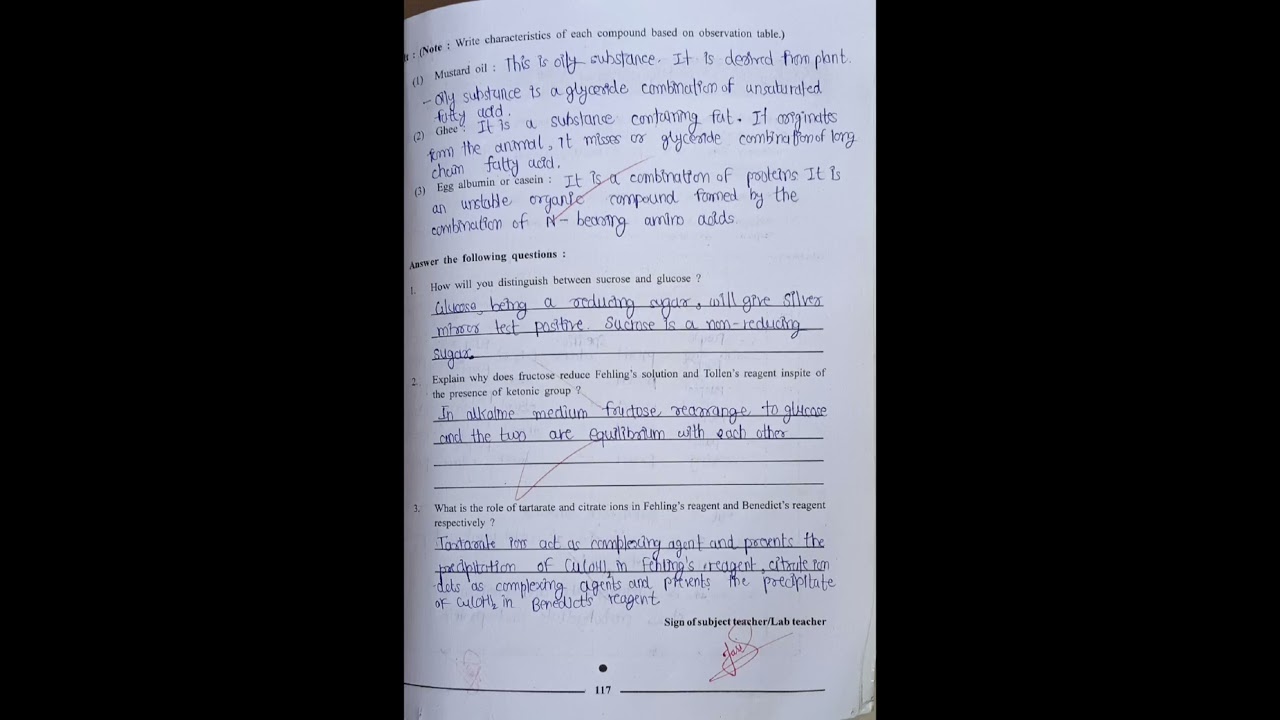 : (Note : Write characteristics of each compound based on observation table.)
(1) Mustard oil : This is oily substance. It is derived from plant.
- oily substance is a glyceride combination of unsaturated
fatty acid.
(2) Ghee : It is a substance containing fat. It originates
from the animal, it misses or glyceride combination of long
chain fatty acid.
(3) Egg albumin or casein : It is a combination of proteins It is
an unstable organic compound formed by the
combination of N- bearing amino acids.
Answer the following questions :
1. How will you distinguish between sucrose and glucose ?
Glucose, being a reducing sugar, will give silver
mirror test positive. Sucrose is a non-reducing
sugar.
2. Explain why does fructose reduce Fehling's solution and Tollen's reagent inspite of
the presence of ketonic group ?
In alkaline medium fructose rearrange to glucose
and the two are equilibrium with each other
3. What is the role of tartarate and citrate ions in Fehling's reagent and Benedict's reagent
respectively ?
Tartarate ions act as complexing agent and prevents the
precipitation of Cu(OH)2 in Fehling's reagent, citrate ion
acts as complexing agents and prevents the precipitate
of Cu(OH)2 in Benedict's reagent
Sign of subject teacher/Lab teacher
117